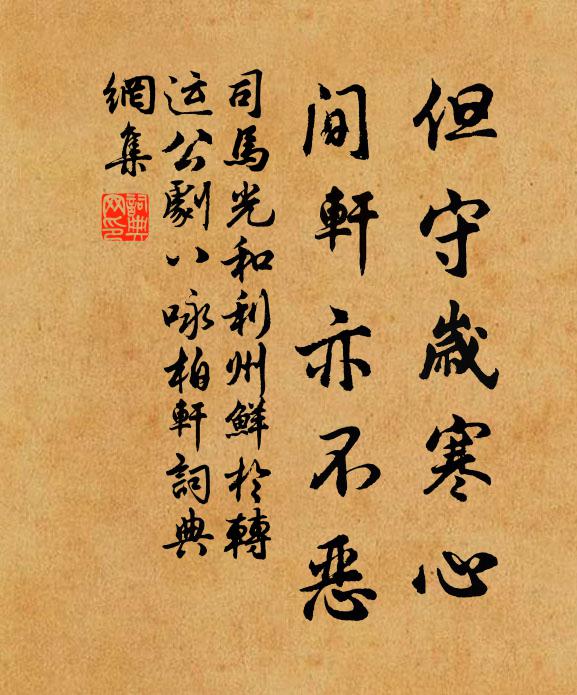 但守歲寒心
間軒亦不惡
司馬光和利州鮮於轉
运公劇八咏柏軒詞典
網集
詞典
网印